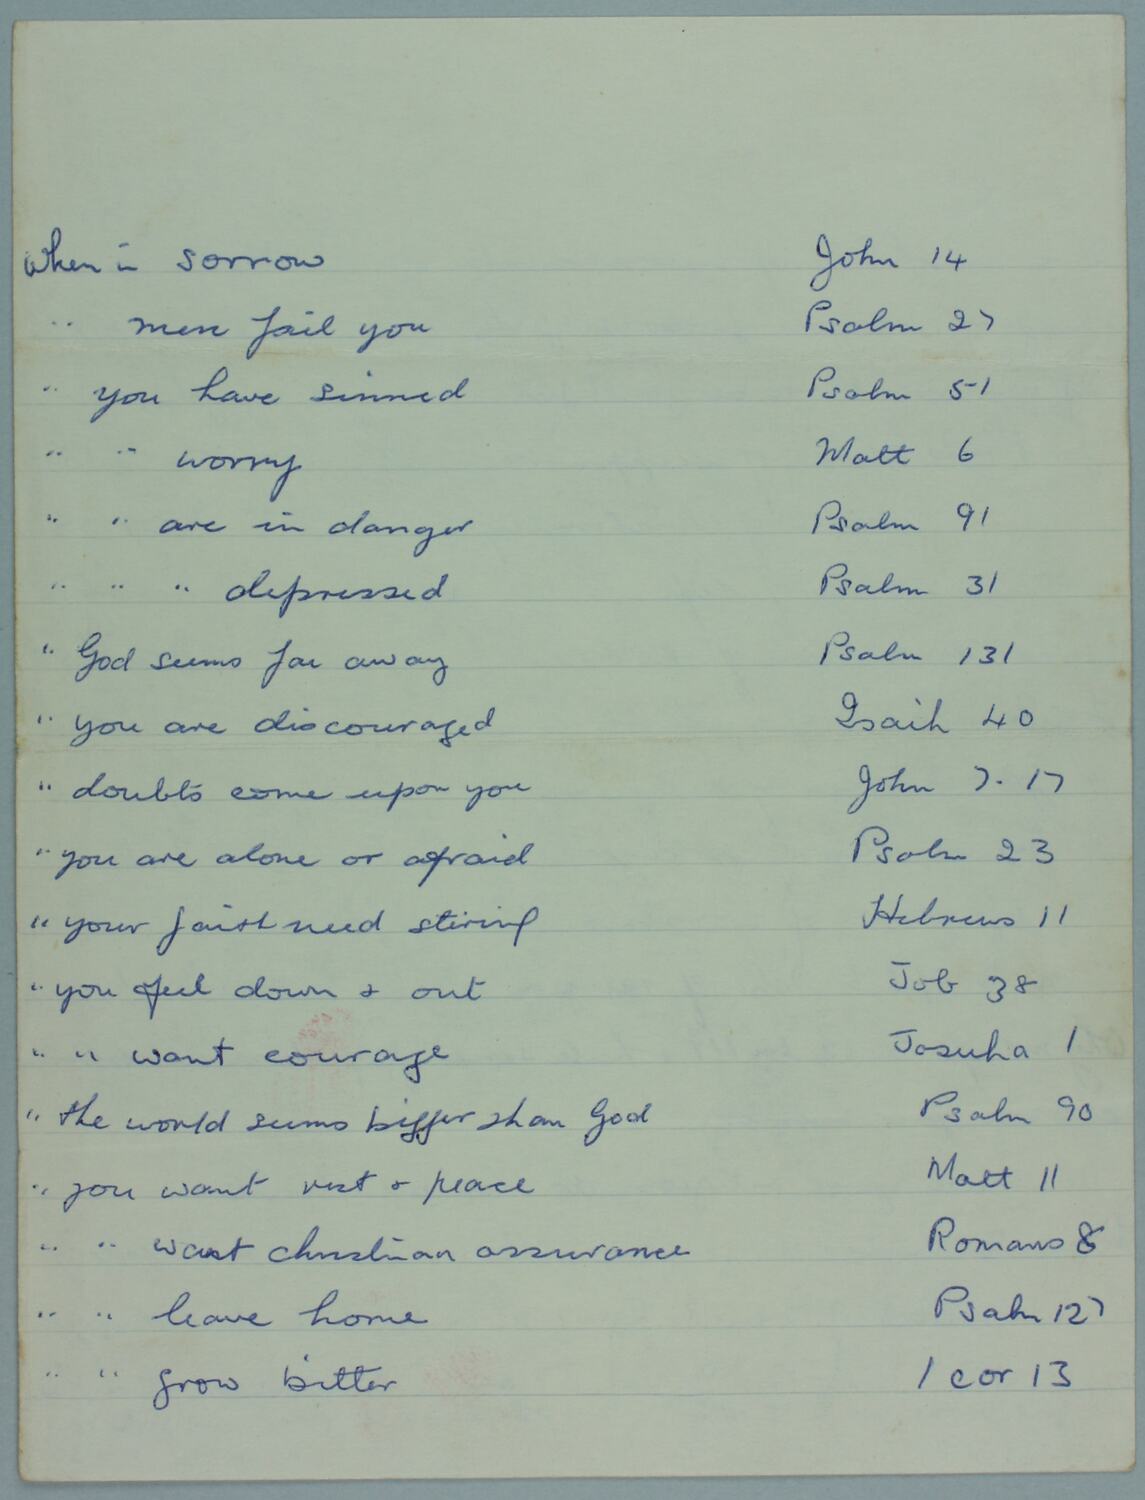 When in sorrow John 14
" men fail you Psalm 27
" you have sinned Psalm 51
" " worry Matt 6
" " are in danger Psalm 91
" " " depressed Psalm 31
" God seems far away Psalm 131
" you are discouraged Isaih 40
" doubts come upon you John 7.17
" you are alone or afraid Psalm 23
" your faith need stiring Hebrews 11
" you feel down & out Job 38
" " want courage Josuha 1
" the world seems bigger than God Psalm 90
" you want rest & peace Matt 11
" " want christian assurance Romans 8
" " leave home Psalm 127
" " grow bitter 1 cor 13